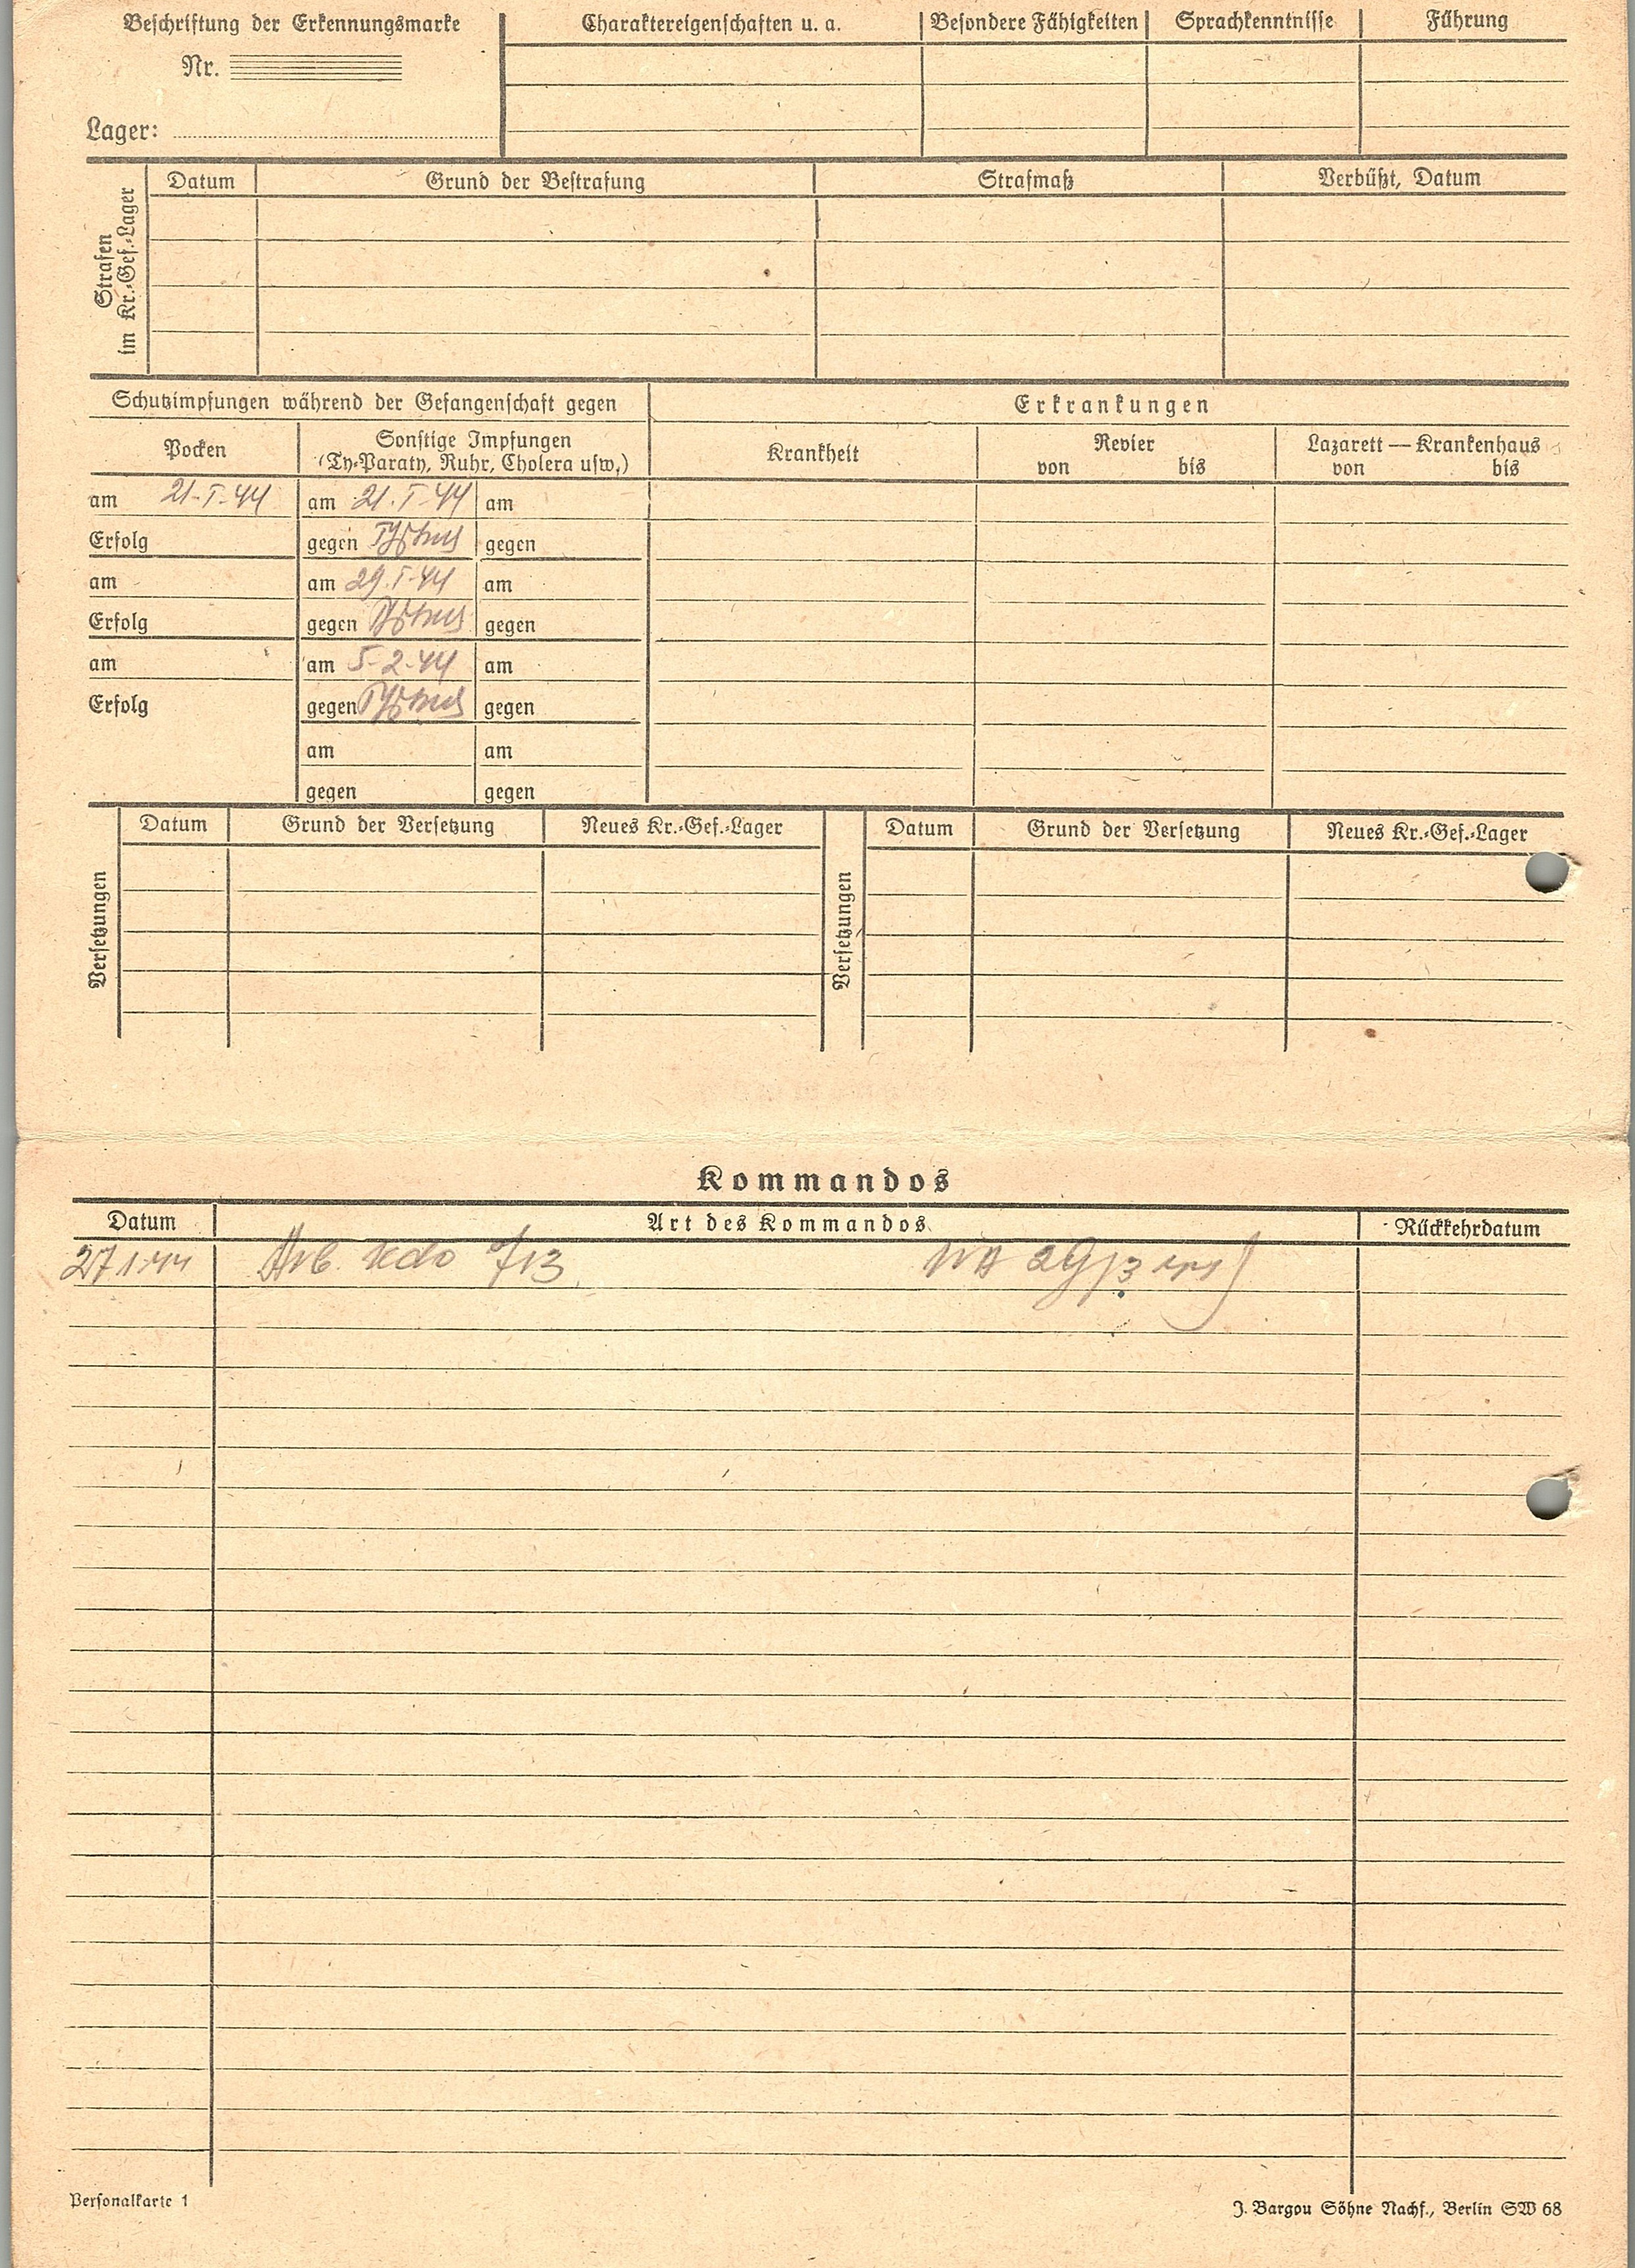 Beschriftung der Erkennungsmarke
Nr.
Lager:
Charaktereigenschaften u. a.
Besondere Fähigkeiten
Sprachkenntnisse
Führung
Strafen
im Kr.-Gef.-Lager
Datum
Grund der Bestrafung
Strafmaß
Verbüßt, Datum
Schutzimpfungen während der Gefangenschaft gegen
Erkrankungen
Pocken
Sonstige Impfungen
(Ty-Paraty, Ruhr, Cholera usw.)
Krankheit
Revier
von bis
Lazarett — Krankenhaus
von bis
am 21-I-44 am 21.I-44 am
Erfolg gegen Typhus gegen
am am 29.I-44 am
Erfolg gegen Typhus gegen
am am 5-2-44 am
Erfolg gegen Typhus gegen
am am
gegen gegen
Versetzungen
Datum
Grund der Versetzung
Neues Kr.-Gef.-Lager
Versetzungen
Datum
Grund der Versetzung
Neues Kr.-Gef.-Lager
Kommandos
Datum
Art des Kommandos
Rückkehrdatum
27.1.44 Arb. Kdo 713
Personalkarte 1
J. Bargou Söhne Nachf., Berlin SW 68